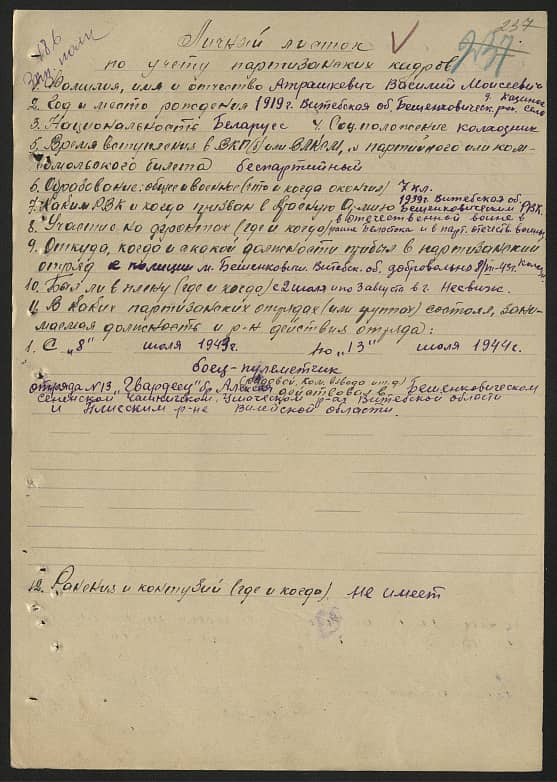 237
186
Личный листок
237
по учету партизанских кадров
1. Фамилия, имя и отчество Атрашкевич Василий Моисеевич
2. Год и место рождения 1919 г. Витебская об. Бешенковическ. р-н. село
3. Национальность Беларус 4. Соц. положение колхозник
5. Время вступления в ВКП(б) или ВЛКСМ, № партийного или ком-
сомольского билета беспартийный
6. Образование: общее и военное (что и когда окончил) 7 кл.
7. Каким РВК и когда призван в Красную Армию 1939 г. Витебская об. Бешенковическим РВК
8. Участие на фронтах (где и когда) в отечественной войне в
9. Откуда, когда и с какой должности прибыл в партизанский
отряд с полиции м. Бешенковичи Витебск. об. добровольно
10. Был ли в плену (где и когда) с 2 июля и по 3 августа в г. Несвиж.
11. В каких партизанских отрядах (или группах) состоял, зани-
маемая должность и р-н действия отряда:
1. С „8" июля 1943 г. по „13" июля 1944 г.
боец-пулеметчик
(рядовой, ком. взвода и т.д)
отряда N 13 „Гвардеец" бр. Алексея действовал в Бешенковическом
Сененском Чашникском. Ушачском р-ах Витебской области
и Плисском р-не Вилейской области.
12. Ранения и контузий (где и когда). не имеет